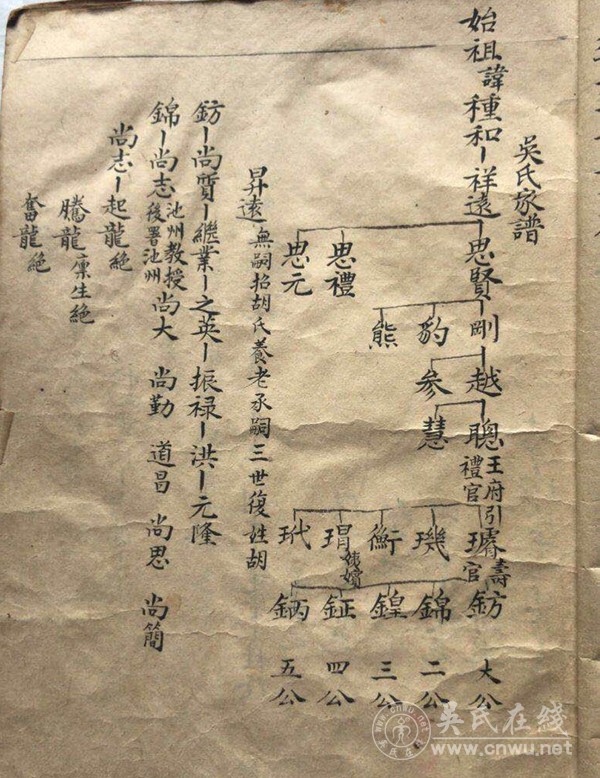 吳氏家譜
始祖諱種和－祥遠－思賢－剛－越－聰 王府引禮官
思禮
思元
豹
熊
參
慧
璿 壽官
璣
衡
瑁
玳
鈁 大公
錦 二公
鍠 三公
鉦 四公
鈵 五公
昇遠 無嗣招胡氏養老承嗣三世復姓胡
鈁－尚質－繼業－之英－振祿－洪－元隆
錦－尚志 池州教授後署池州 尚大 尚勤 道昌 尚思 尚簡
尚志－起龍 絕
騰龍 廩生絕
奮龍 絕
吴氏在线
www.cnwu.net